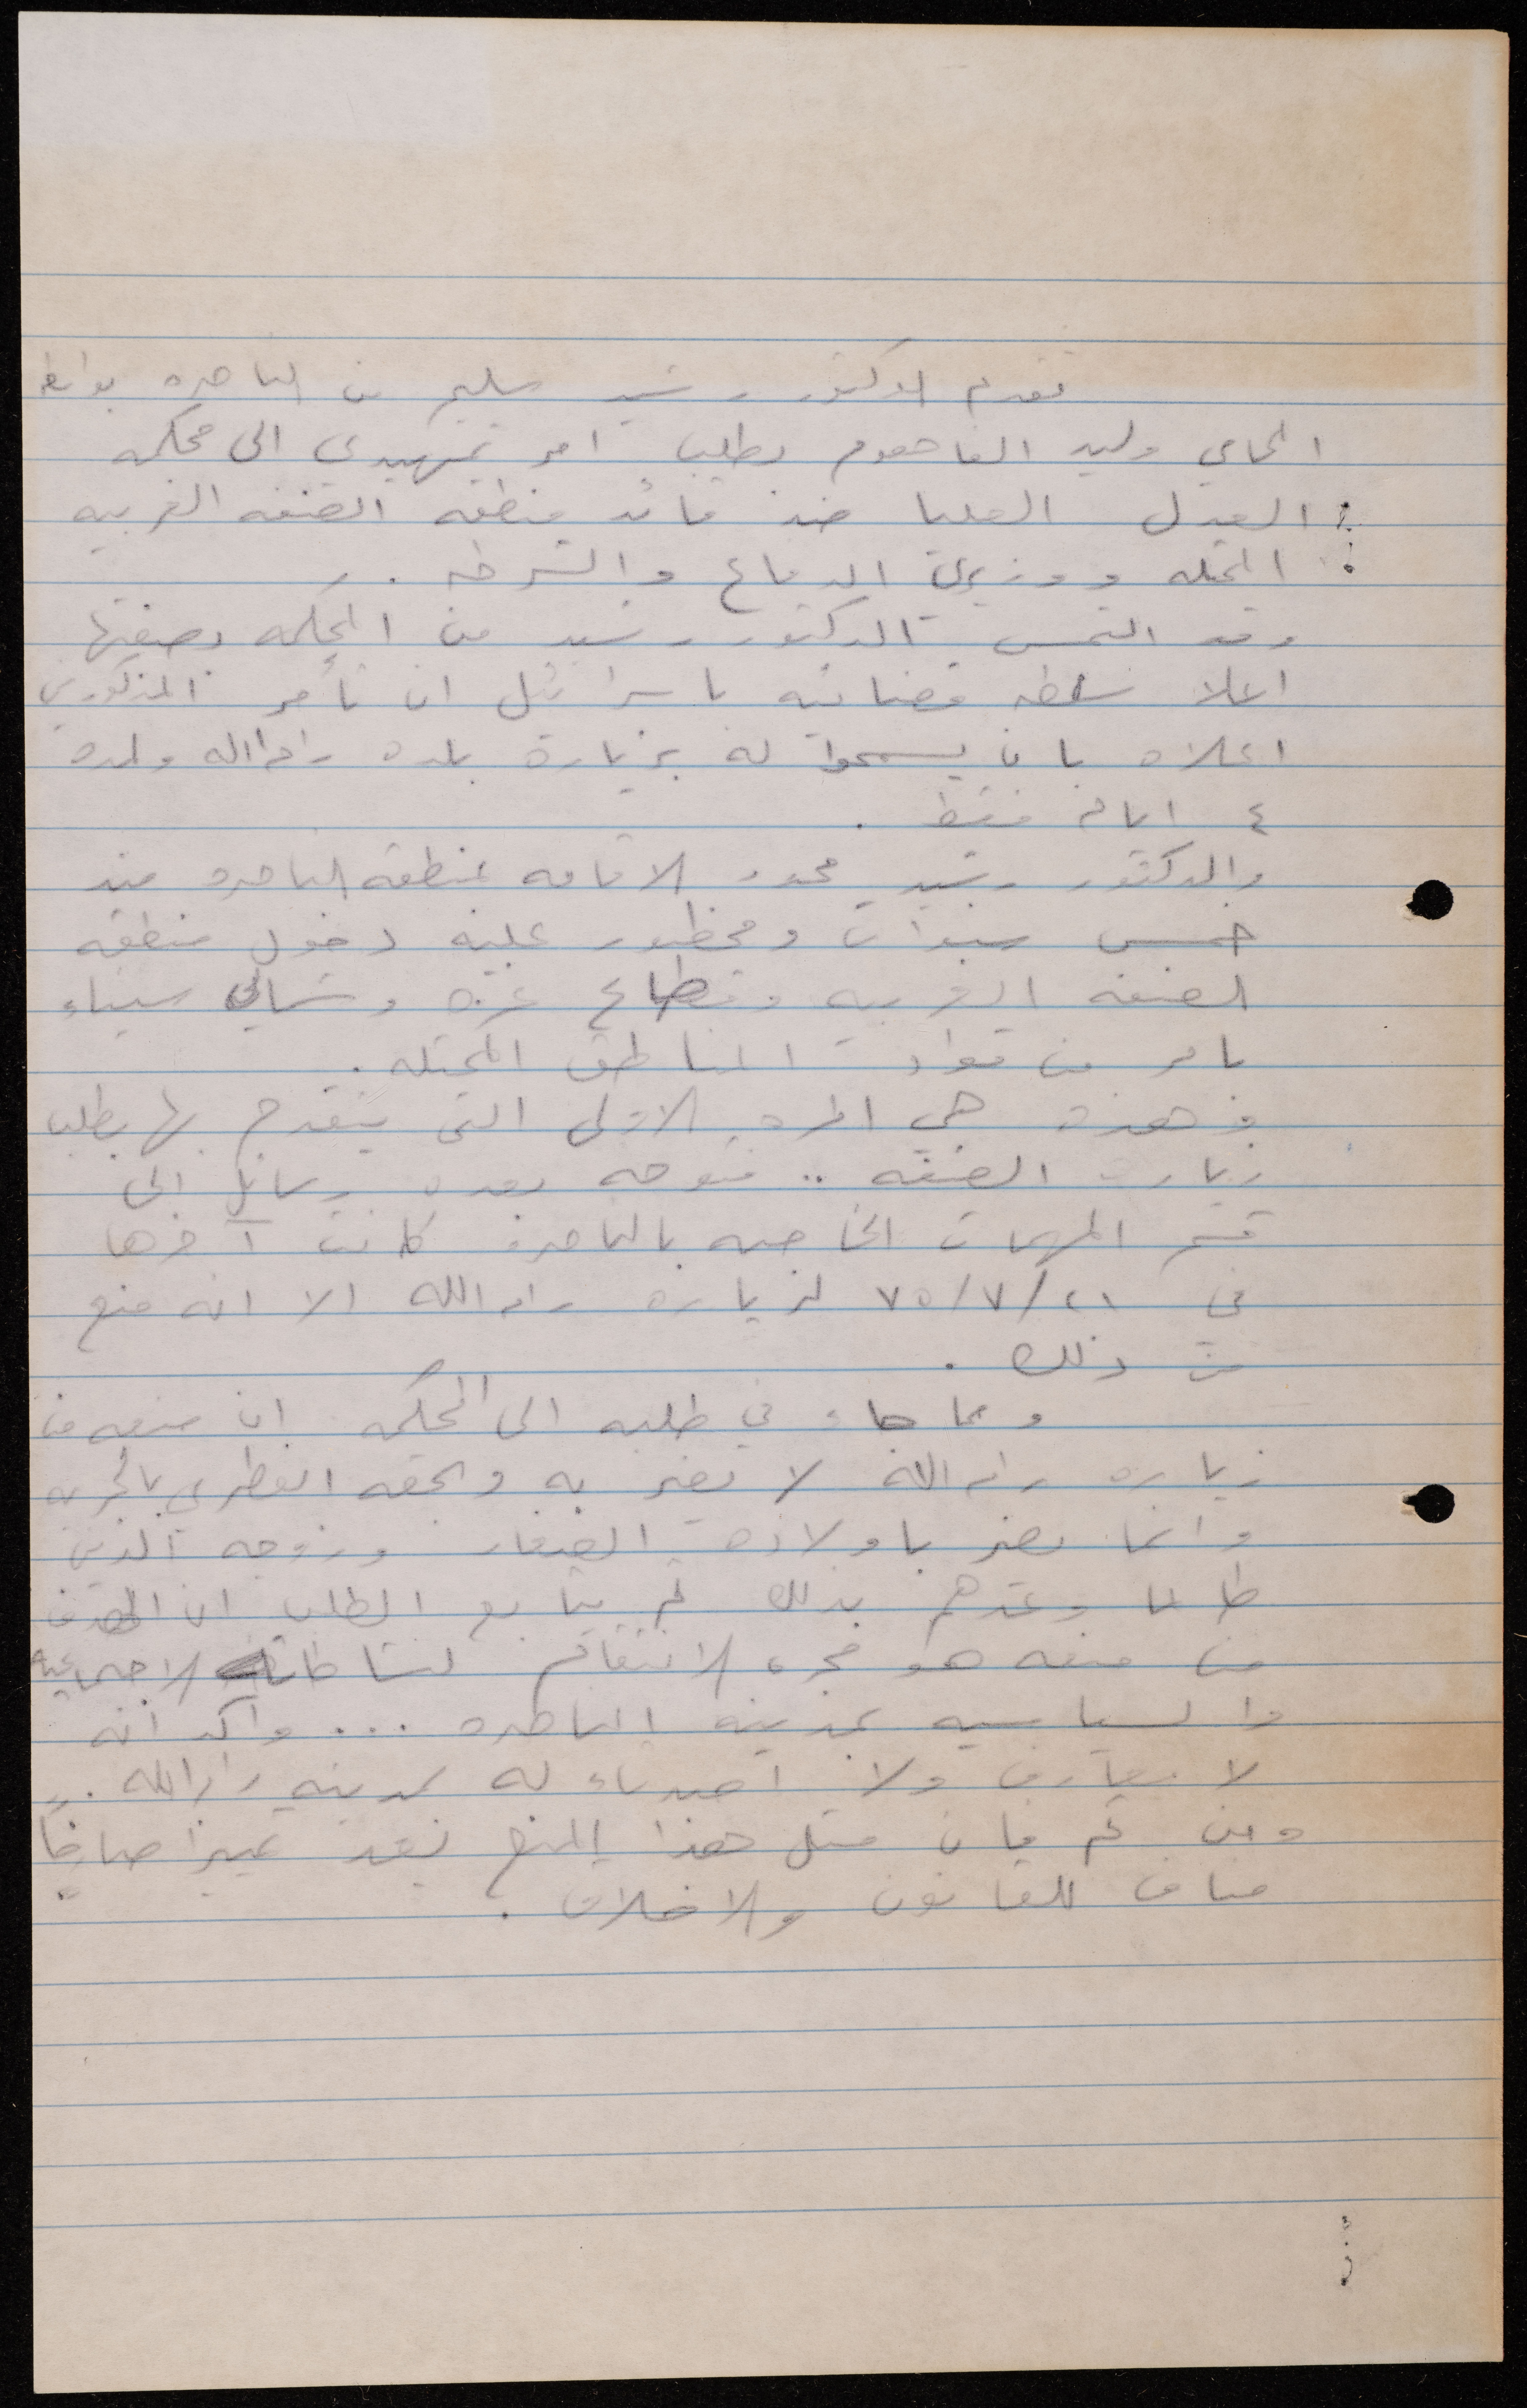 تقدم الدكتور رشيد سليم من الناصره بواسطه
المحامي وليد الفاهوم بطلب امر تمهيدي الى محكمه
العدل العليا ضد قائد منطقه الضفه الغربيه
المحتله ووزيري الدفاع والشرطه ..
وقد التمس الدكتور رشيد من المحكمه بصفتها
اعلا سلطه قضائيه باسرائيل ان تأمر المذكورين
اعلاه بان يسمحوا له بزيارة بلده رام الله ولمده
٤ ايام فقط .
والدكتور رشيد محدد الاقامه بمنطقه الناصره منذ
خمس سنوات ومحظور عليه دخول منطقه
الضفه الغربيه وقطاع غزه وشمالي سيناء
بامر من قواد المناطق المحتله .
وهذه هي المره الاولى التي يتقدم بها بطلب
زيارة الضفه .. فتوجه بعده رسائل الى
قسم المهمات الخاصه بالناصره كانت آخرها
في ٢١/٧/٧٥ لزياره رام الله الا انه منع
من ذلك .
ومما جاء في طلبه الى المحكمه ان منعه من
زياره رام الله لا يضر به وبحقه الفطري بالحريه
وانما يضر باولاده الصغار وزوجه الذين
طالما وعدهم بذلك ثم يتابع الطلب ان الهدف
من منعه هو مجرد الانتقام لنشاطاته الاجتماعيه
والسياسيه بمدينه الناصره ... واكد انه
لا معارف ولا اصدقاء له بمدينه رام الله ..
ومن ثم فان مثل هذا المنع يعد تمييزا صارخاً
مناف للقانون والاخلاق .